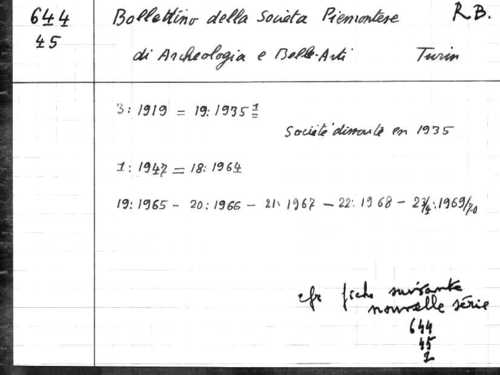 644
45
Bollettino della Societa Piemontese
R.B.
di Archeologia e Belle-Arti Turin
3: 1919 = 19: 1935 1
Société dissoute en 1935
1: 1947 = 18: 1964
19: 1965 - 20: 1966 - 21: 1967 - 22: 1968 - 23/4: 1969/70
cfr fiche suivante
nouvelle série
644
45
2